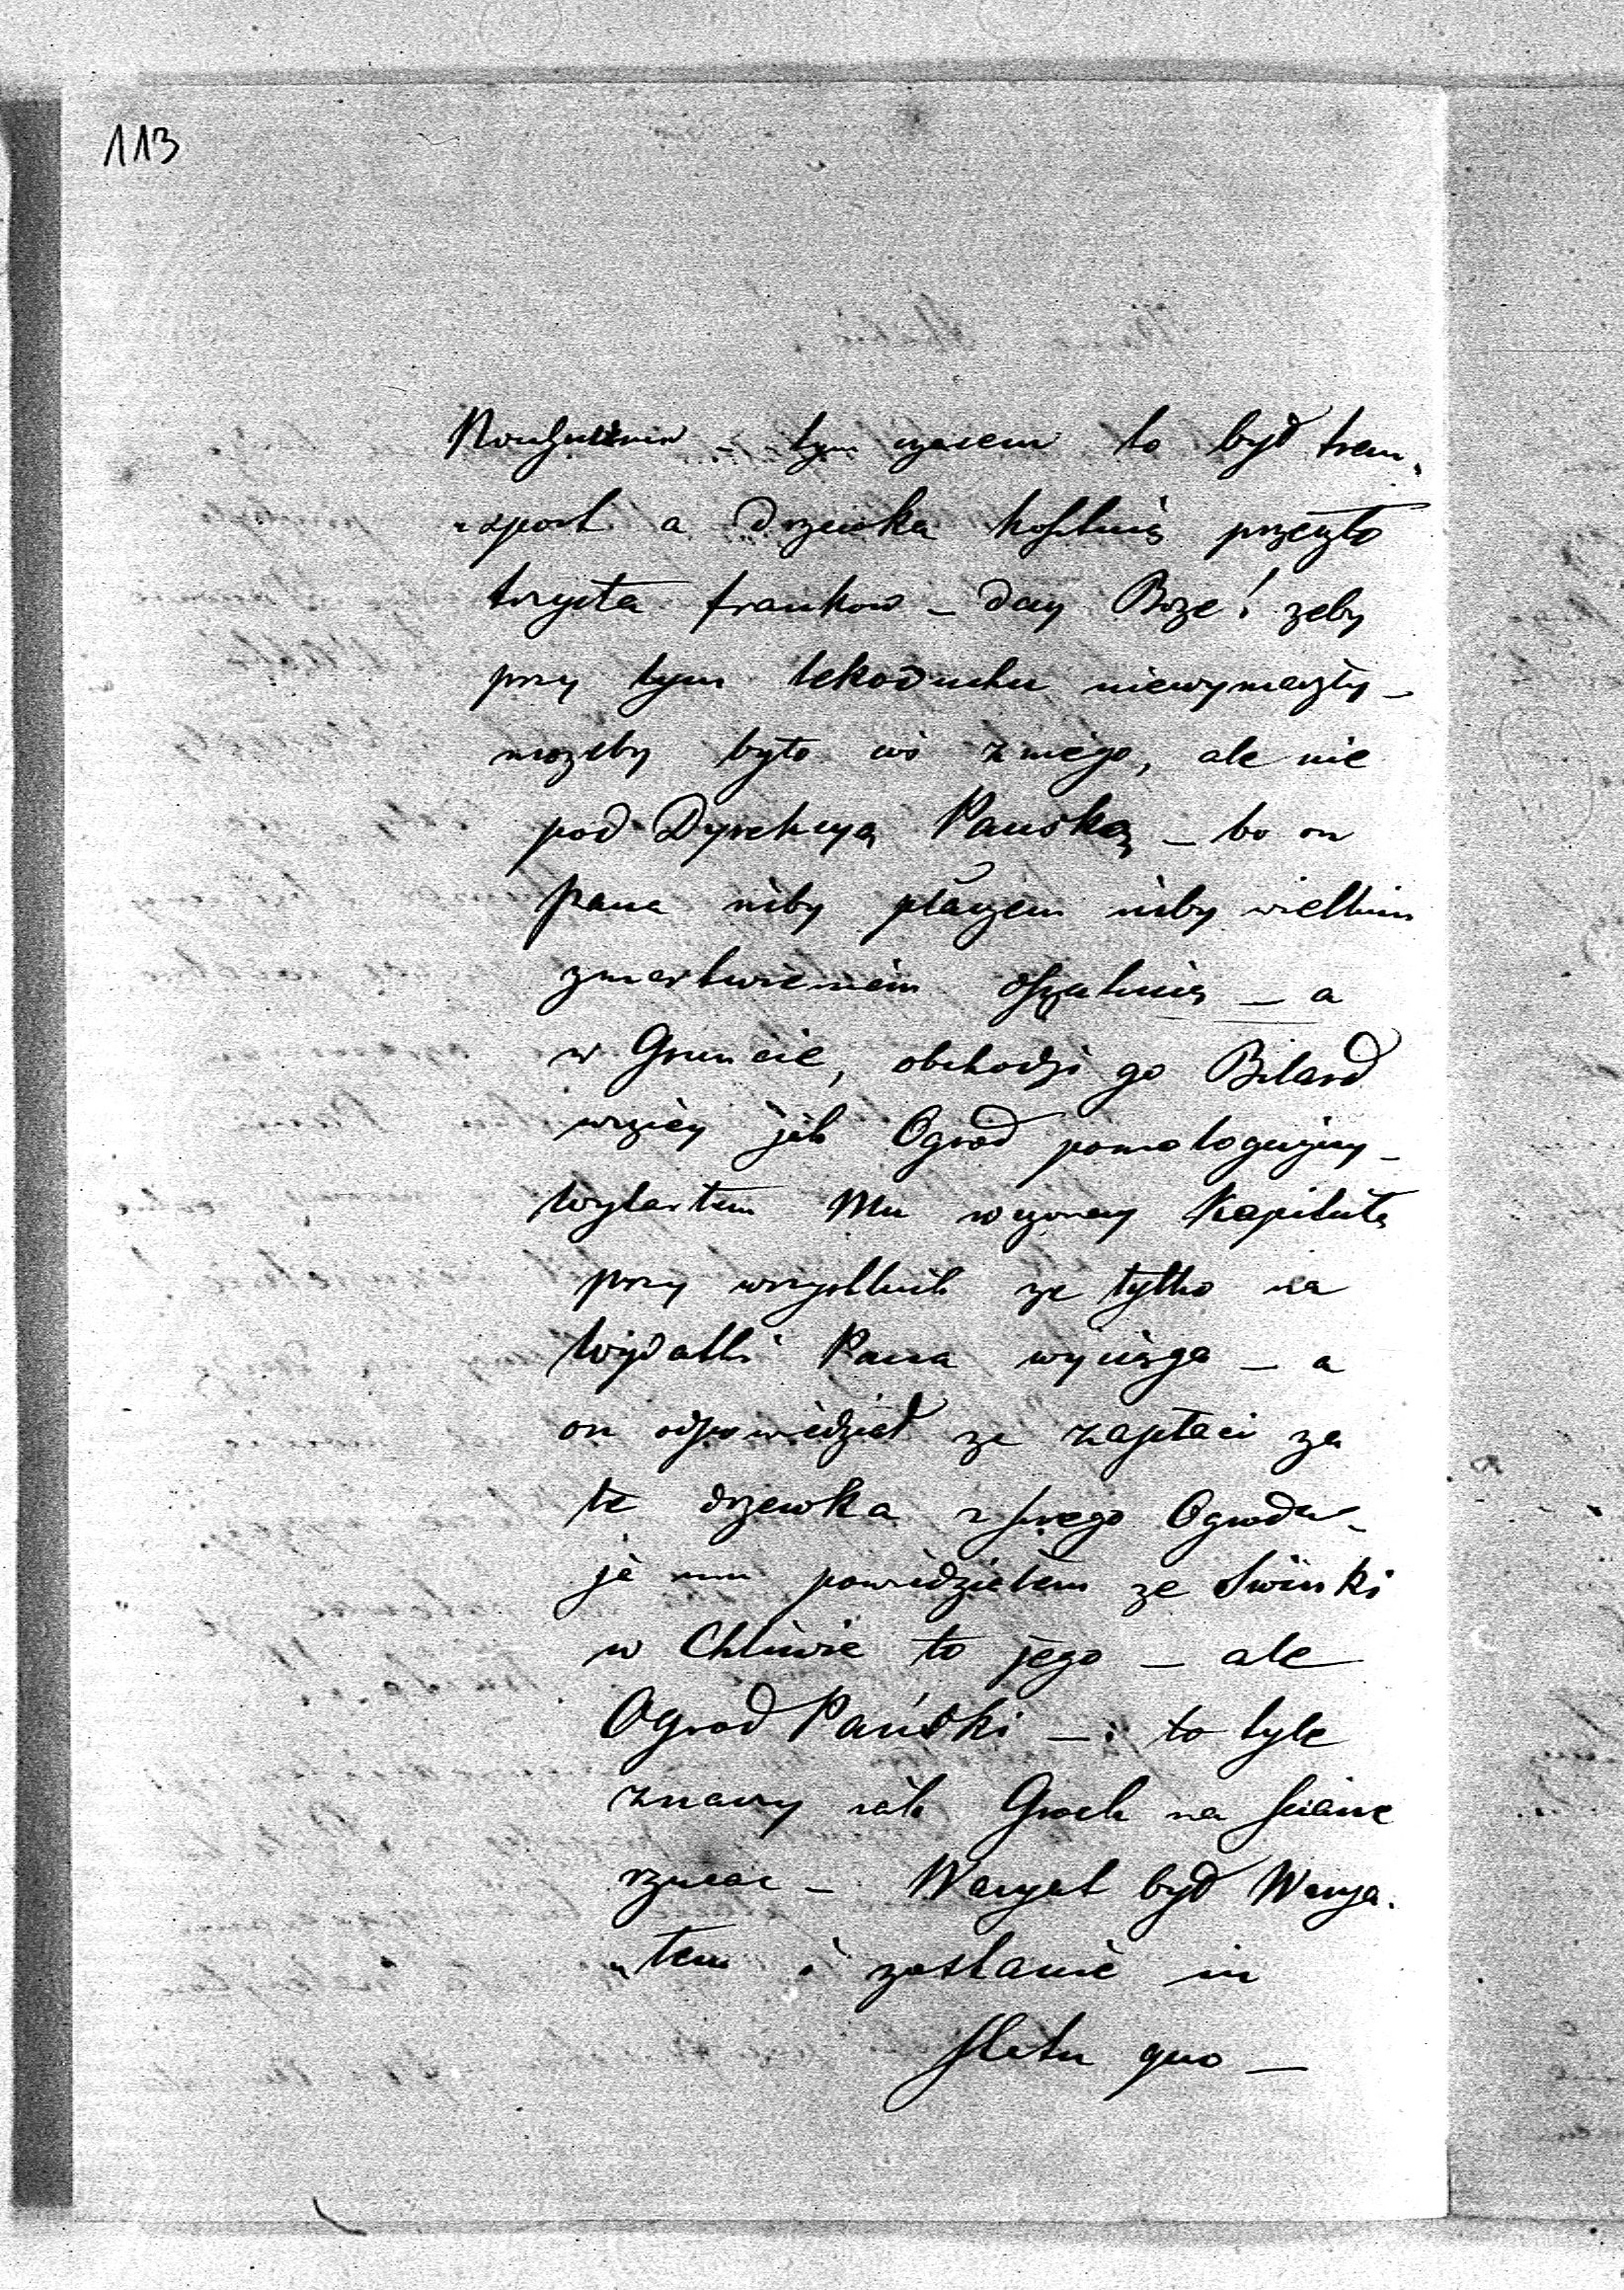 113
tym czasem to był tran,
„sport a drzewka kosztuią przeszło
trzysta frankow – day Boze! zeby
przy tym lekoduchu niewymarzły –
mozeby było coś z niego, ale nie
pod Dyrekcyą Panską – bo on
pana niby płaczem niby wielkim
zmartwieniem oszukuią – a
w Gruncie, obchodzi go Bilard
więcy jak Ogrod pomologiczny –
Wytartem Mu wczoray Kapitułę
przy wszystkich ze tylko na
Wydatki Pana wyciąga – a
on odpowiedział ze zapłaci za
te drzewka z swego Ogrodu –
ja mu powiedziałem ze Swinki
w Chliwie to jego – ale
Ogrod Pański – to tyle
znaczy iak Groch na sciane
rzucac – Waryat był Warya.
„tem i zostanie in
statu quo –